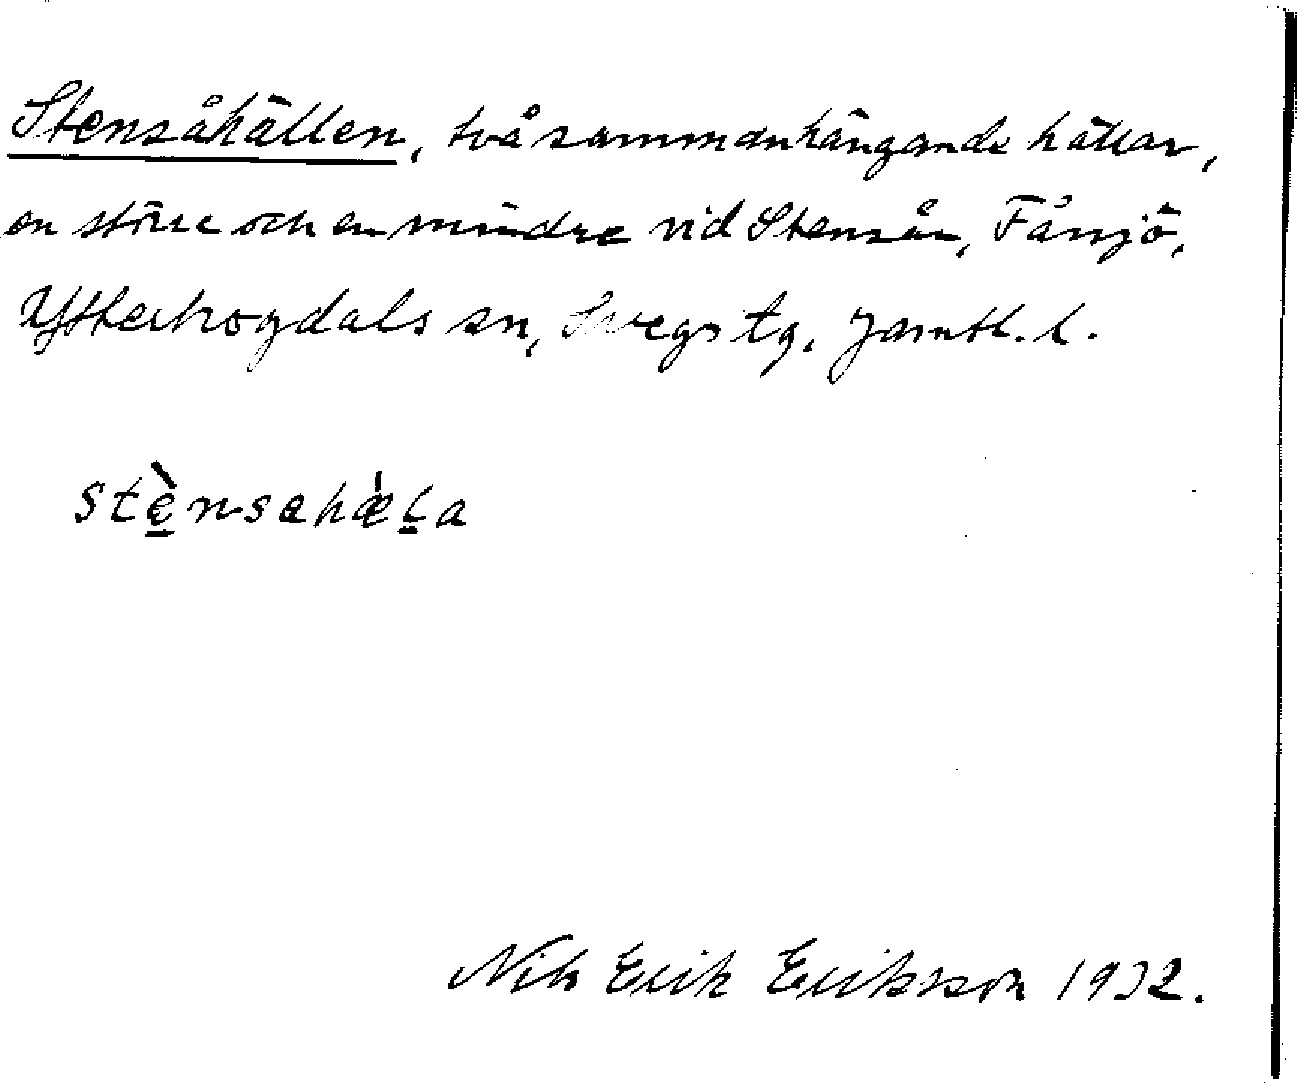 Stensåhällen, två sammanhängande hällar,
en större och en mindre vid Stensån, Fåssjö,
Ytterhogdals sn, Svegs tg. Jämtl. l.
stènsahæ̀la
Nils Erik Eriksson 1932.